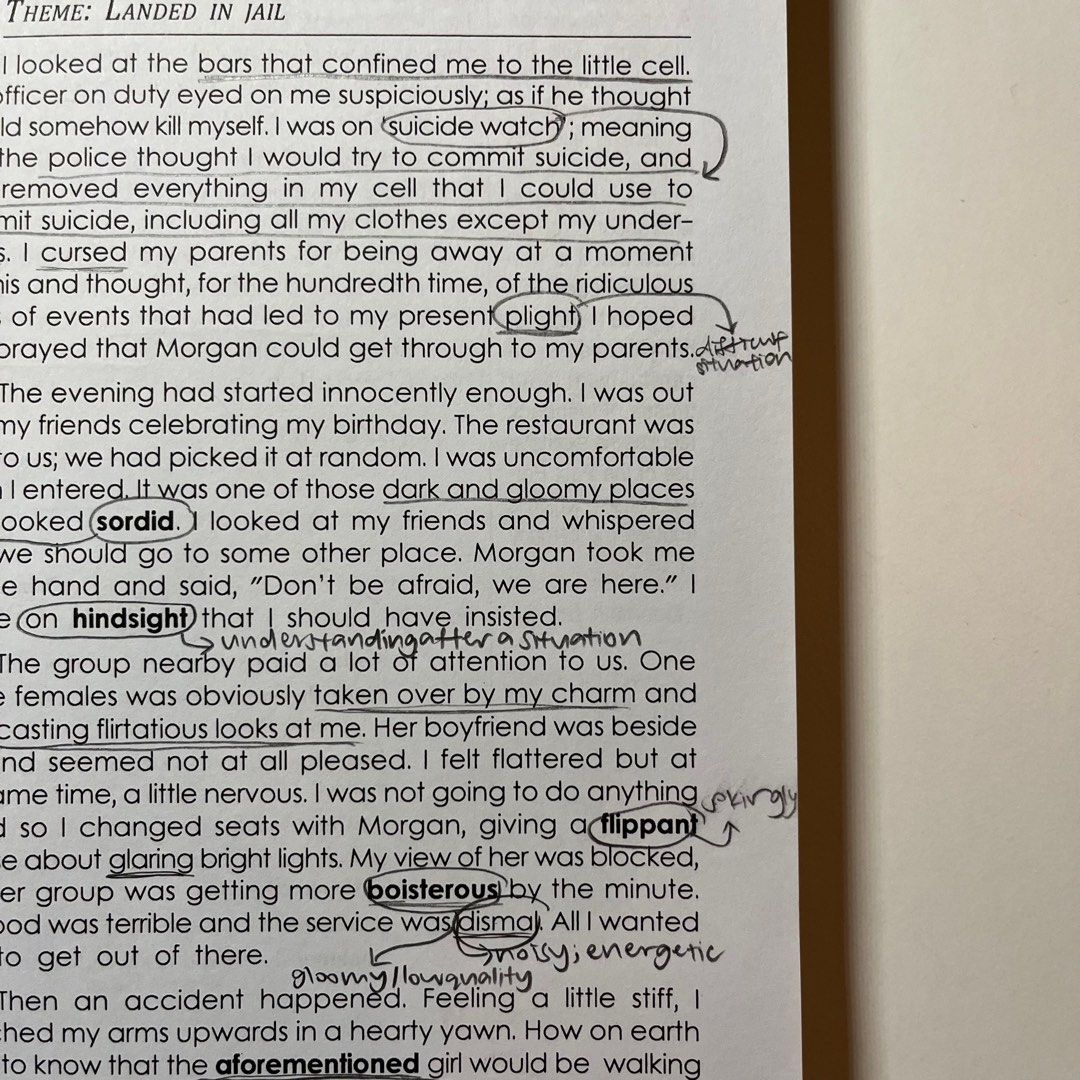 THEME: LANDED IN JAIL
I looked at the bars that confined me to the little cell.
officer on duty eyed on me suspiciously; as if he thought
ld somehow kill myself. I was on 'suicide watch'; meaning
the police thought I would try to commit suicide, and
removed everything in my cell that I could use to
mit suicide, including all my clothes except my under-
s. I cursed my parents for being away at a moment
his and thought, for the hundredth time, of the ridiculous
s of events that had led to my present plight. I hoped
prayed that Morgan could get through to my parents.
situation
The evening had started innocently enough. I was out
my friends celebrating my birthday. The restaurant was
to us; we had picked it at random. I was uncomfortable
I entered. It was one of those dark and gloomy places
ooked sordid. I looked at my friends and whispered
we should go to some other place. Morgan took me
e hand and said, "Don't be afraid, we are here." I
e on hindsight that I should have insisted.
understanding after a situation
The group nearby paid a lot of attention to us. One
e females was obviously taken over by my charm and
casting flirtatious looks at me. Her boyfriend was beside
nd seemed not at all pleased. I felt flattered but at
ame time, a little nervous. I was not going to do anything
d so I changed seats with Morgan, giving a flippant
se about glaring bright lights. My view of her was blocked,
er group was getting more boisterous by the minute.
ood was terrible and the service was dismal. All I wanted
to get out of there.
noisy; energetic
gloomy/low quality
Then an accident happened. Feeling a little stiff, I
ched my arms upwards in a hearty yawn. How on earth
to know that the aforementioned girl would be walking